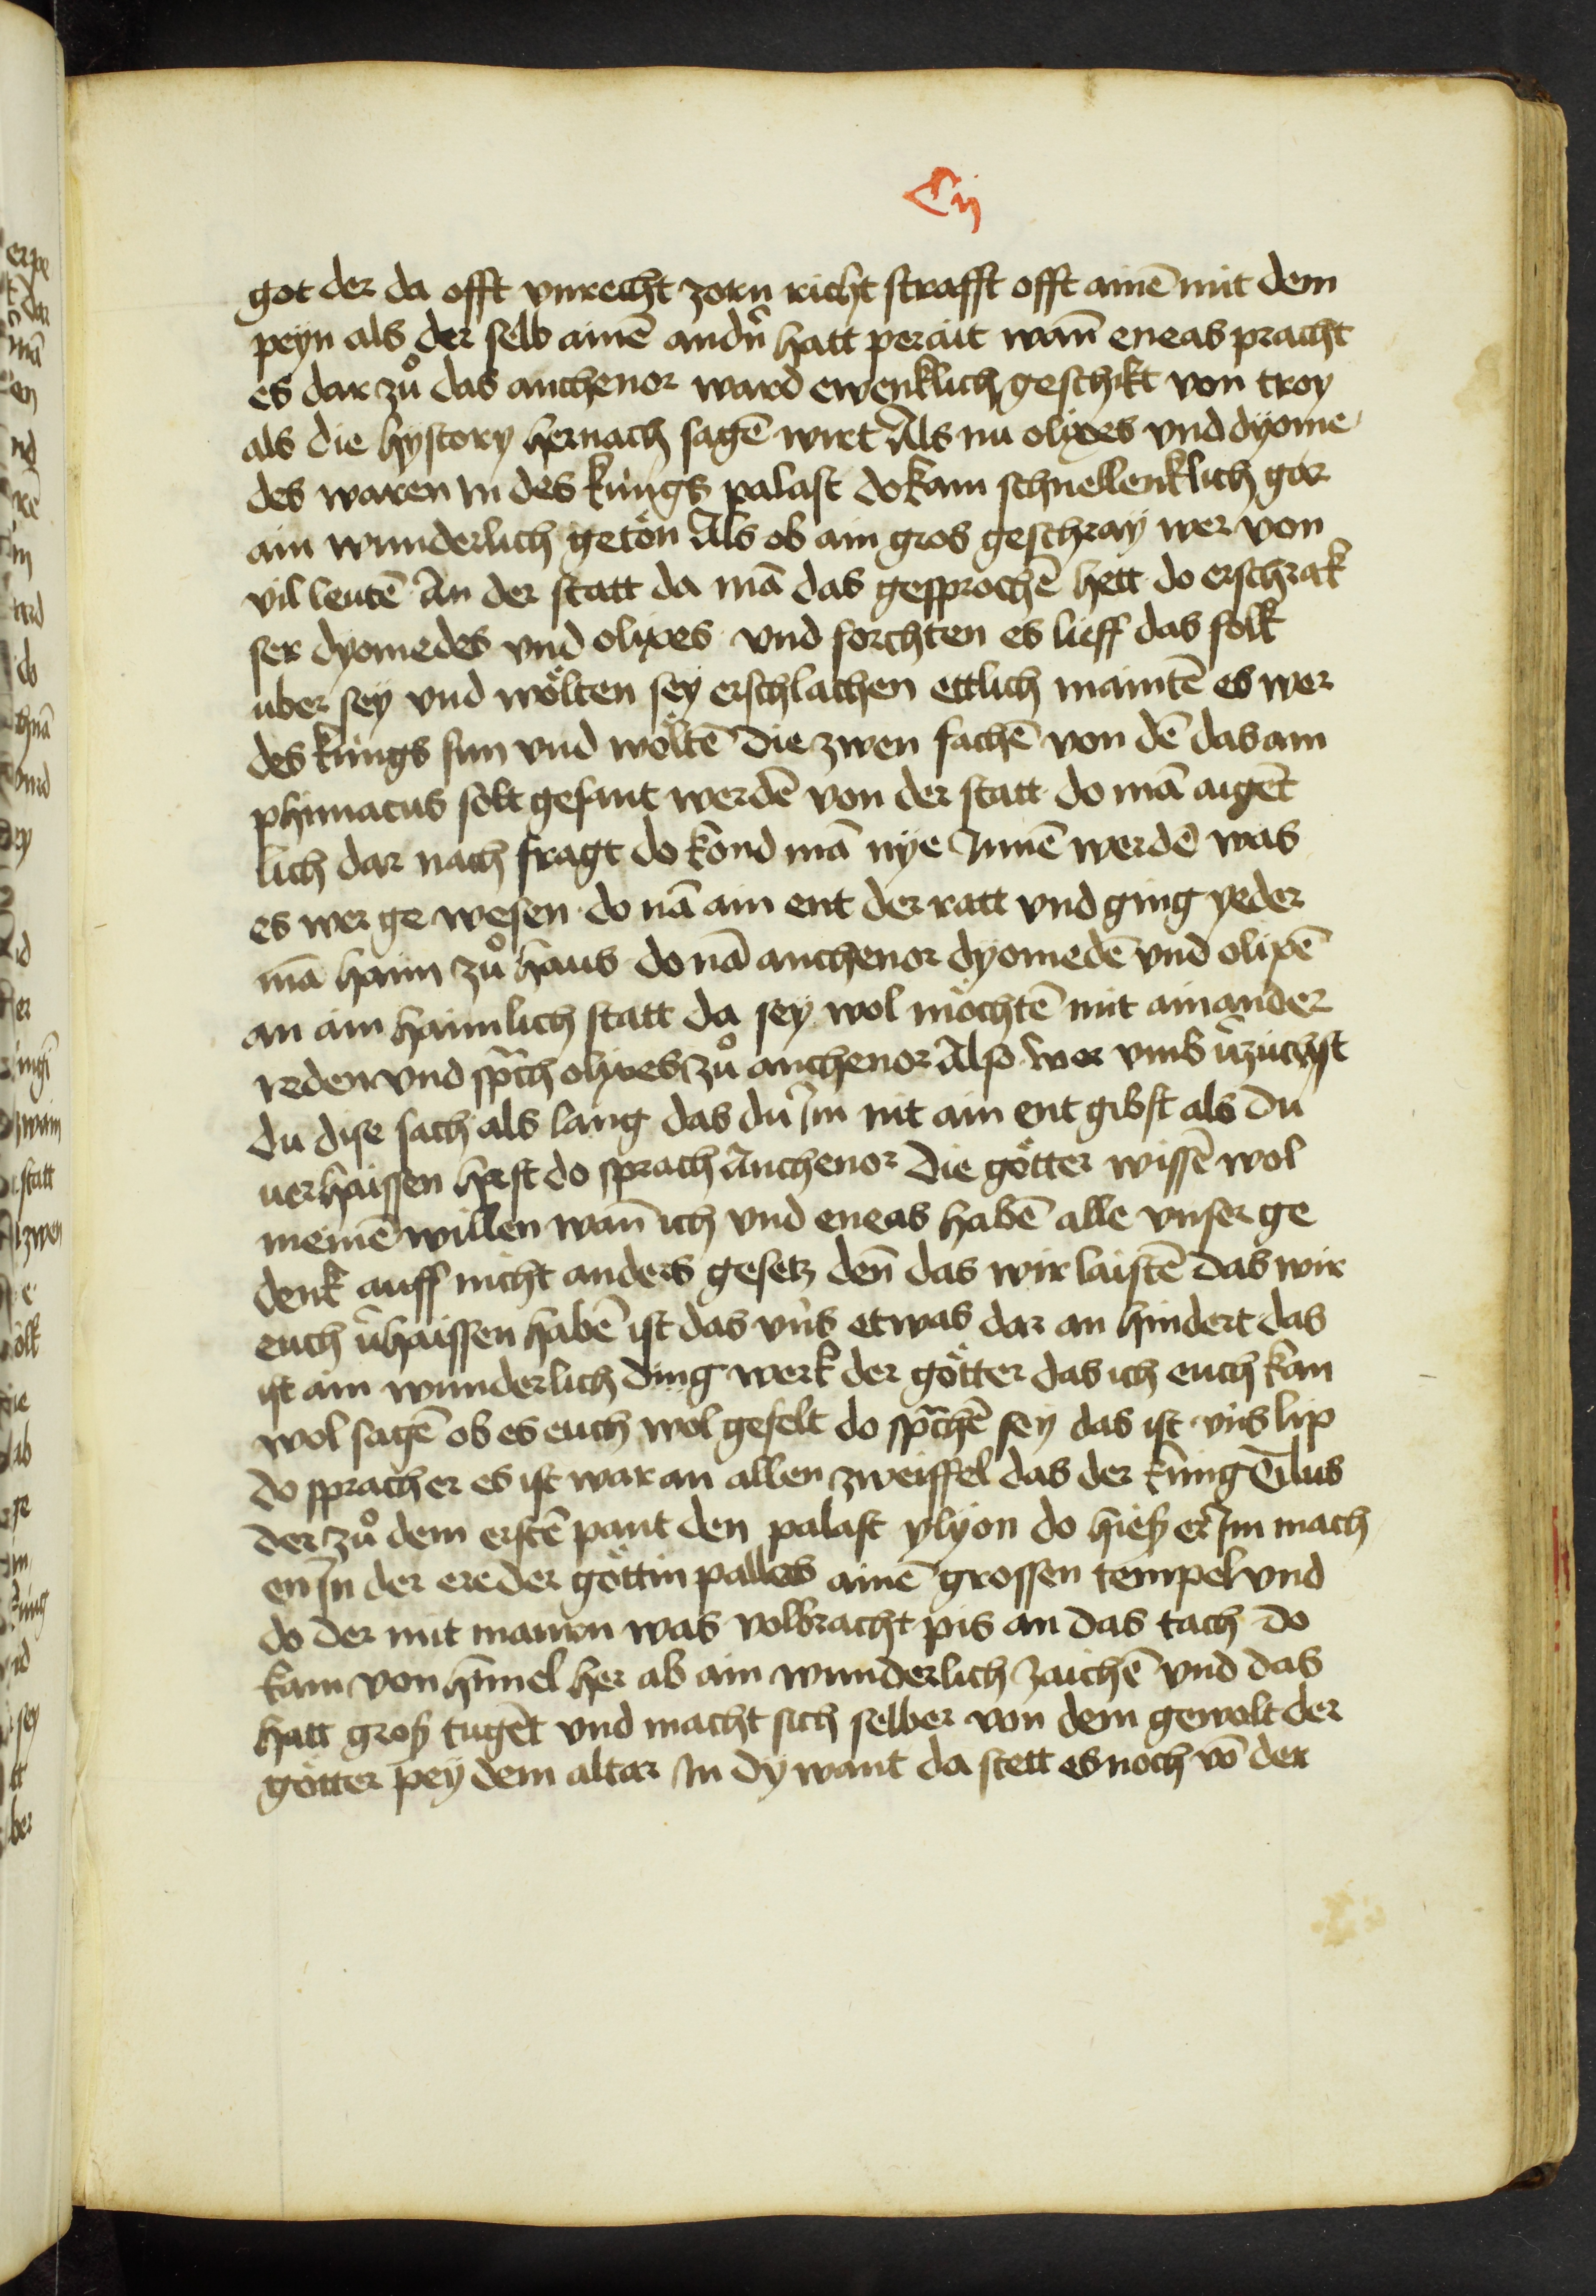 Cij
got der da offt vnrecht zorn richt strafft offt ainē mit dem
peyn als der selb ainē andn̄ hatt perait wañ eneas pracht
es dar zů das anthenor ward ewenklich geschikt von troy
als die hystory hernach sagē wirt Als nu olixes vnd dyome
des waren in des kungs palast do kam schnellenklich gar
ain wunderlich getön Als ob ain gros geschray wer von
vil leutē An der statt da mā das gesprochē hett do erschrak
ser dyomedes vnd olixes vnd forchten es lieff das folk
uber sey vnd wölten sey erschlachen ettlich maintē es wer
des kungs sun vnd wöltē die zwen fachē von dē das am
phimacus solt gesant werdē von der statt do mā aigēt
lich dar nach fragt do kond mā nye Innē werdē was
es wer ge wesen do nā ain ent der ratt vnd ging yeder
mā haim zů haus do nā anthenor dyomedē vnd olixē
an ain haimlich statt da sey wol möchtē mit ainander
reden vnd sp̄ch olixes zů anthenor Also wor vmb v̄zuchst
du dise sach als lang das du Im nit ain ent gibst als du
uerhaissen hast do sprach Anthenor Die götter wissē wol
meinē willen wañ ich vnd eneas habē alle vnser ge
denk auff nicht anders gesetz deñ das wir laistē das wir
euch v̄haissen habē ist das vn̄s etwas dar an hindert das
ist ain wunderlich ding werk der götter das ich euch kan
wol sagē ob es euch wol gefelt do sp̄chē sey das ist vn̄s lip
do sprach er es ist war an allen zweiffel das der kung Ylus
der zů dem erstē paut den palast ylyon do hieß er Im mach
en In der ere der göttin pallas ainē grossen tempel vnd
do der mit mauren was volbracht pis an das tach do
kam von him̄el her ab ain wunderlich zaichē vnd das
hatt groß tugēt vnd macht sich selber von dem gewalt der
götter pey dem altar In dy want da stett es noch vō der